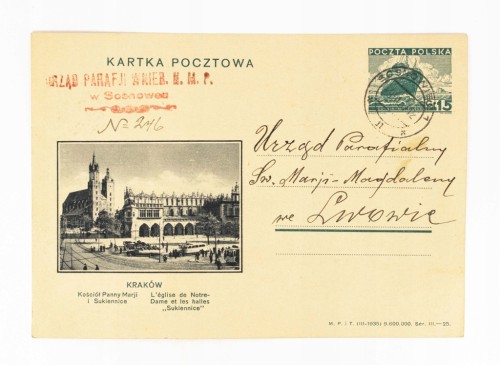 KARTKA POCZTOWA
POCZTA POLSKA
15
URZĄD PARAFJI WNIEB. N. M. P.
w Sosnowcu
№ 246
Urząd Parafialny
Św. Marji-Magdaleny
we Lwowie
KRAKÓW
Kościół Panny Marji
i Sukiennice
L'église de Notre-
Dame et les halles
„Sukiennice"
M. P. i T. (III-1935) 9.000.000. Ser. III.—25.